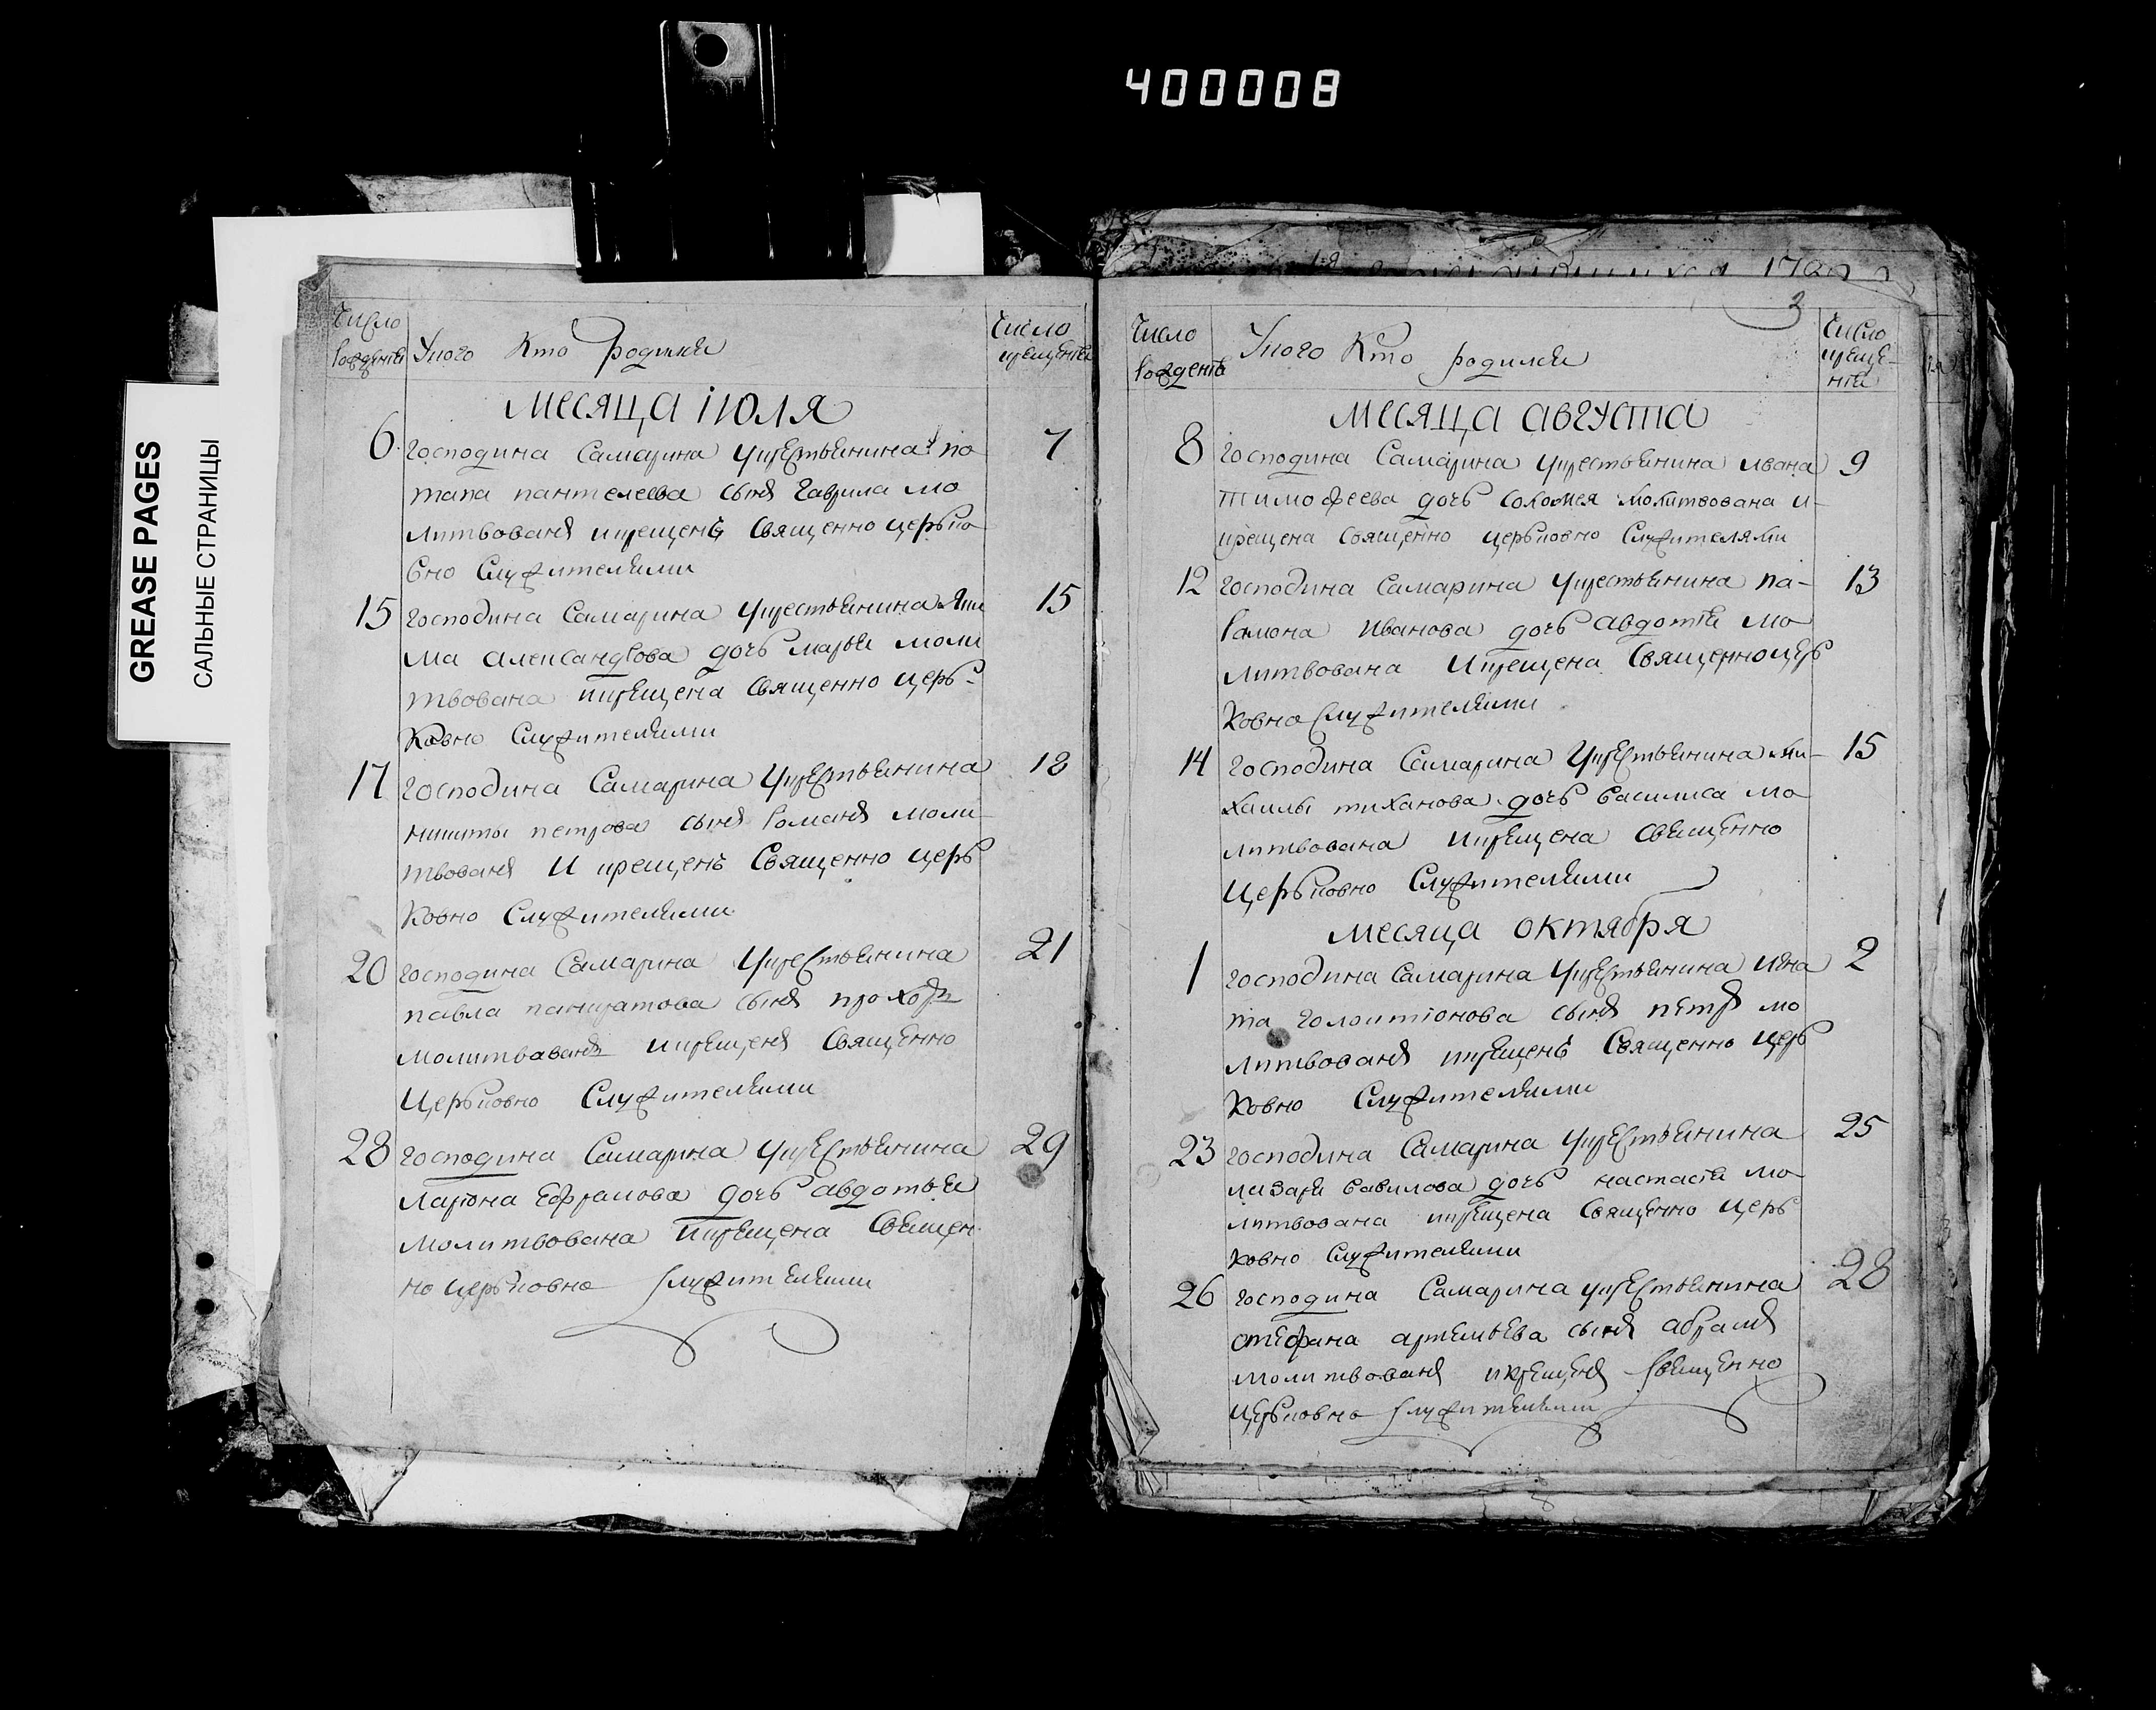 400008
GREASE PAGES
САЛЬНЫЕ СТРАНИЦЫ
Число рождения
Укого Кто родился
Число крещения
месяца июля
6 господина Самарина укрестьянина по 7
тапа пантелеева сынъ гаврила мо
литвованъ икрещенъ священно церько
вно служителями
15 господина Самарина укрестьянина аки 15
ма александрова дочь марья моли
твована икрещена священно церь-
ковно служителями
17 господина Самарина укрестьянина 18
никиты петрова сынъ романъ моли
твованъ и крещенъ священно церь
ковно служителями
20 господина Самарина укрестьянина 21
павла панкратова сынъ прохоръ
молитваванъ икрещенъ священно
церьковно служителями
28 господина Самарина укрестьянина 29
лариона ефремова дочь авдотья
молитвована икрещена священ
но церьковно служителями
3
Число рождения
Укого Кто родился
Число креще-
ния
месяца августа
8 господина Самарина укрестьянина ивана 9
тимофеева дочь соломея молитвована и-
крещена священно церьковно служителями
12 господина Самарина укрестьянина па- 13
рамона иванова дочь авдотья мо
литвована икрещена священноцерь
ковно служителями
14 господина Самарина укрестьянина ми- 15
хаилы тиханова дочь василиса мо
литвована икрещена священно
церьковно служителями
месяца октября
1 господина Самарина укрестьянина игна 2
та сынъ петръ мо
литвованъ икрещенъ священно церь
ковно служителями
23 господина Самарина укрестьянина 25
лазаря савилова дочь настасья мо
литвована икрещена священно церь
ковно служителями
26 господина Самарина укрестьянина 28
стефана артемьева сынъ абрамъ
молитвованъ икрещенъ священно
церьковно служителями